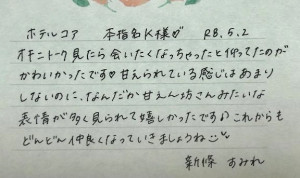 ホテルコア 本指名K様が R8.5.2
オキニトーク見たら会いたくなっちゃったと仰ってたのが
かわいかったです♡甘えられている感じはあまり
しないのに、なんだか甘えん坊さんみたいな
表情が多く見られて嬉しかったです♪これからも
どんどん仲良くなっていきましょうね
新條 すみれ